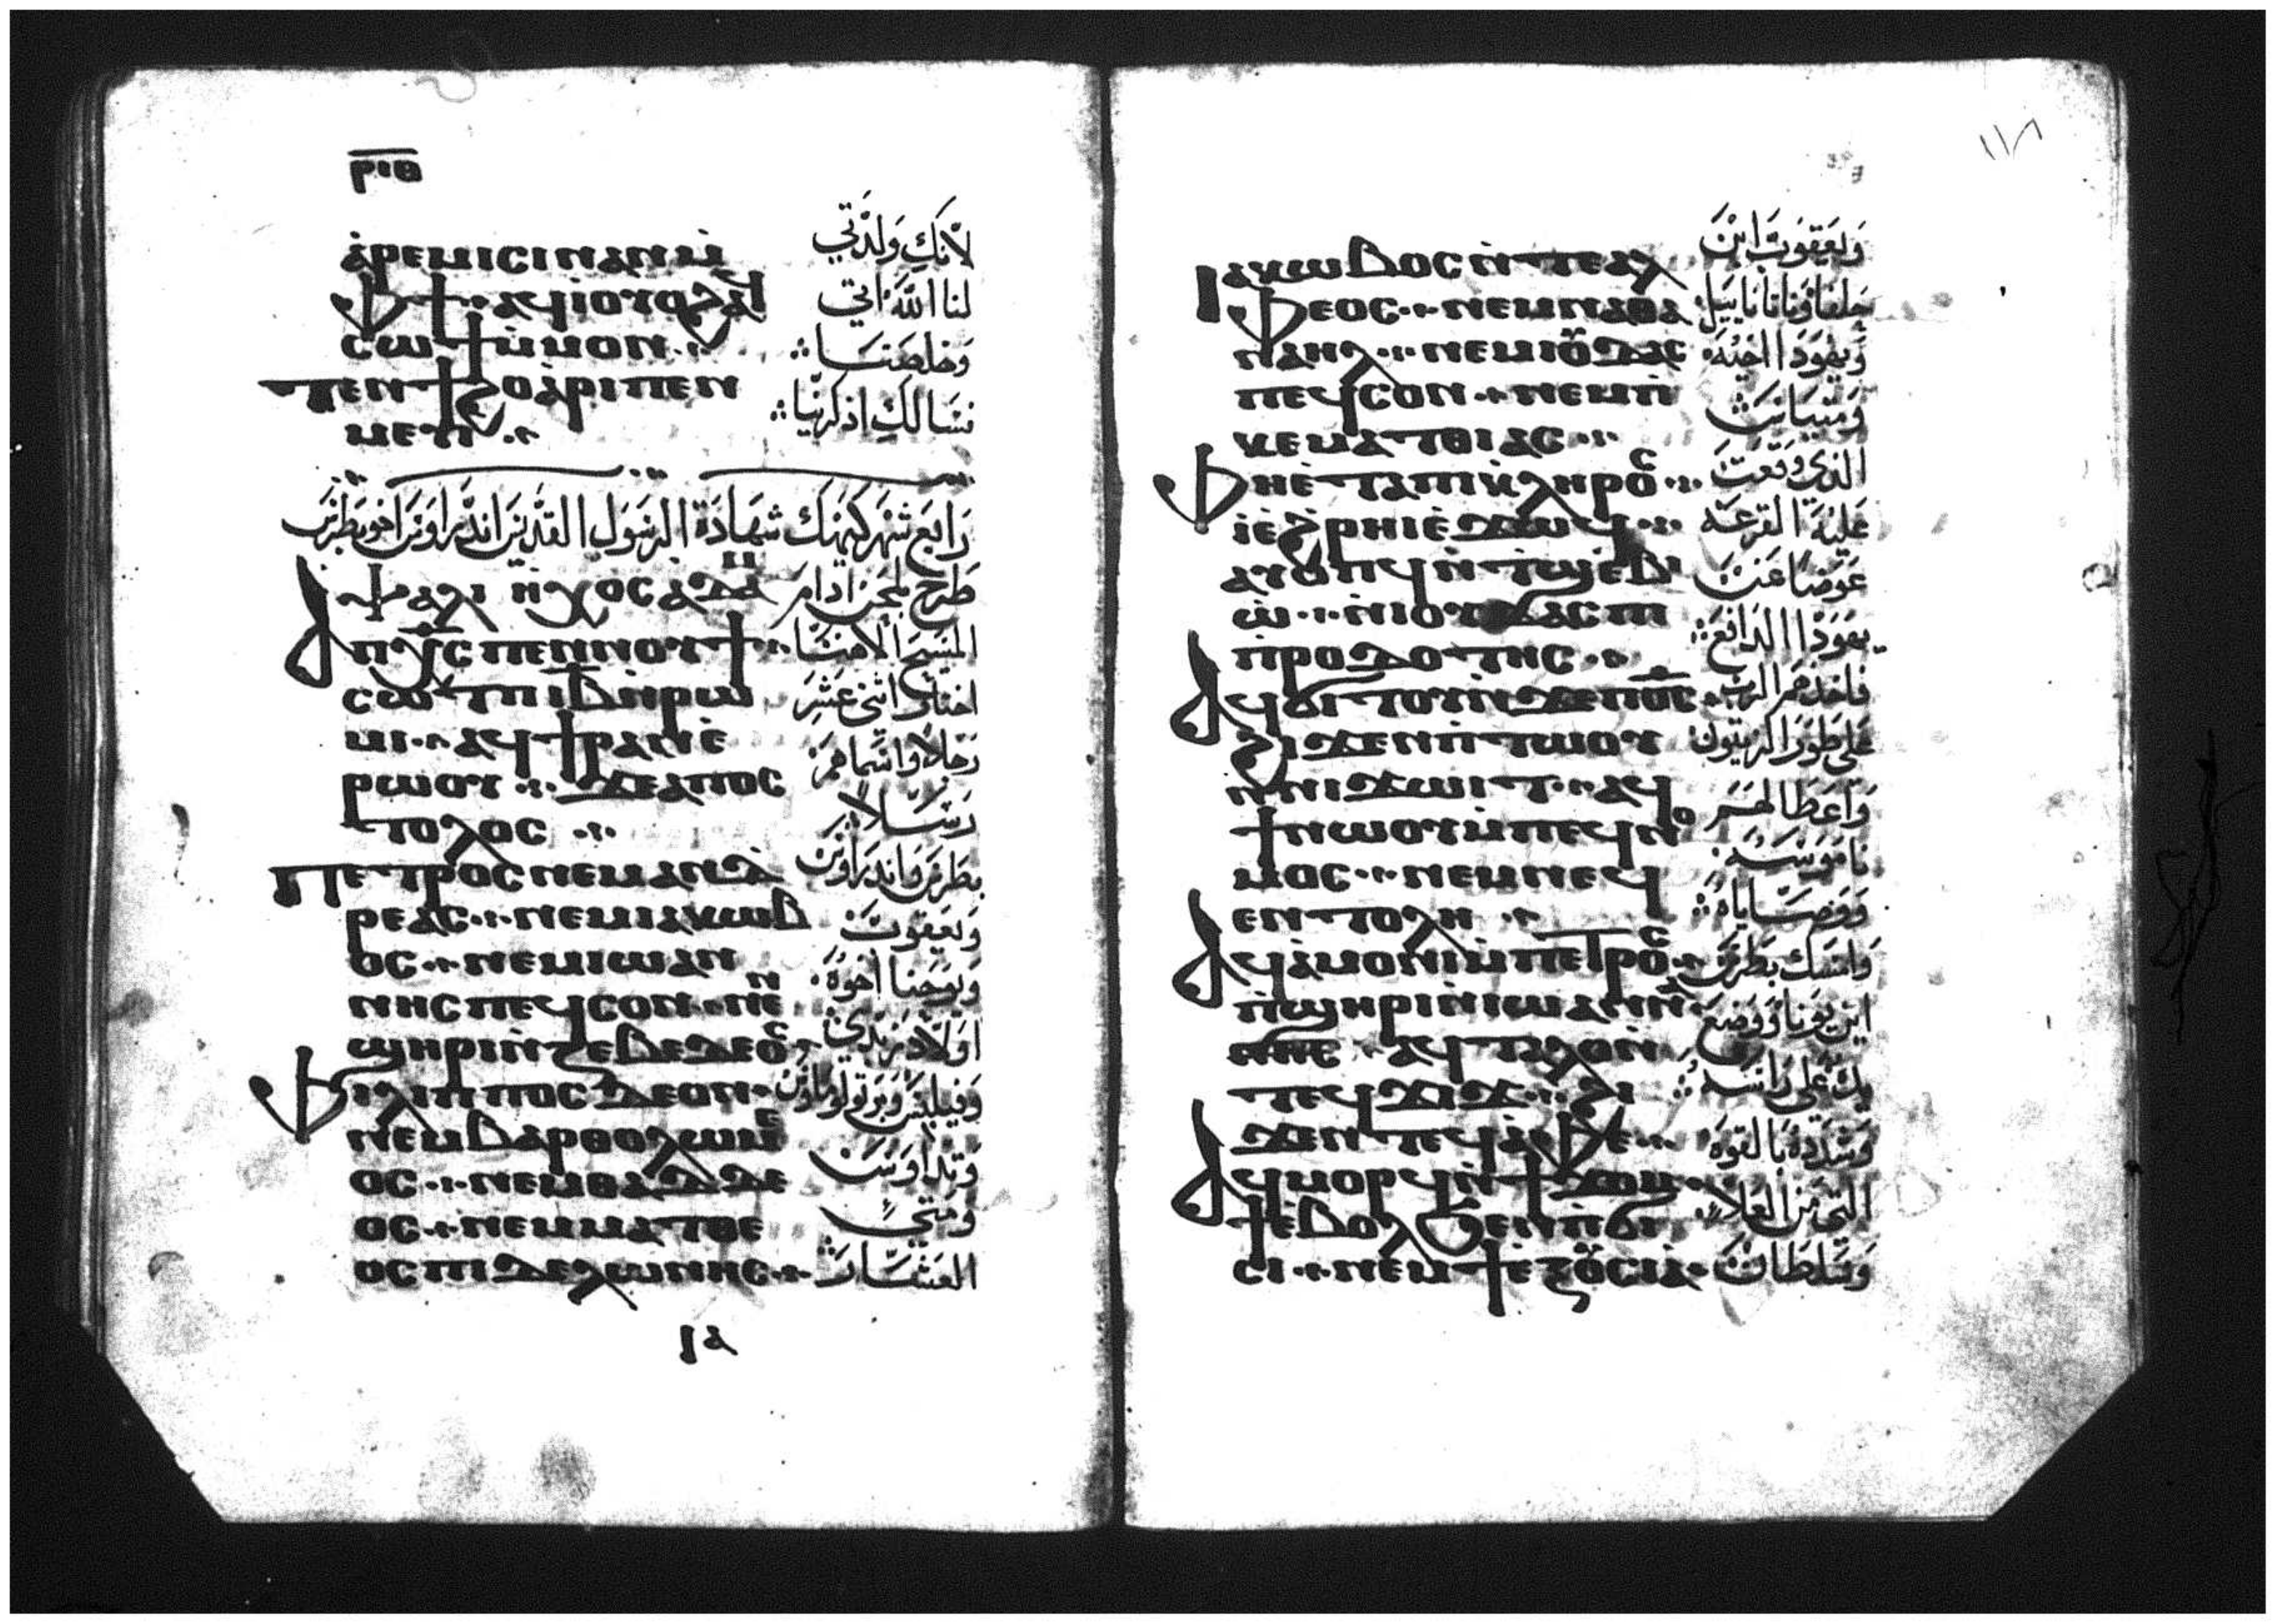 ⲣⲓⲑ
ⲁ̀ⲣⲉⲙⲓⲥⲓ ⲛⲁⲛ ⲙ̀
ⲫϯ ⲁϥⲓ̀ ⲟⲩⲟϩ ⲁϥ
ⲥⲱϯ ⲙ̀ⲙⲟⲛ
ⲧⲉⲛϯϩⲟ ⲁⲣⲓⲡⲉⲛ
ⲙⲉⲩⲓ
لانك ولدتي
لنا الله اتي
وخلصنا
نسالك اذكرينا
رابع شهر كيهك شهادة الرسول القديس اندراوس اخو بطرس
ⲯⲁⲗⲓ ⲛ̀ⲏⲭⲟⲥ ⲁⲇⲁ
طرح لحن ادام
ⲁⲡⲭ̅ⲥ̅ ⲡⲉⲛⲛⲟⲩϯ
ⲥⲱⲧⲡ ⲓ̅ⲃ̅ ⲛ̀ⲣⲱ
ⲙⲓ ⲁϥϯⲣⲁⲛ ⲉ̀
ⲣⲱⲟⲩ ϫⲉ ⲁⲡⲟⲥ
ⲧⲟⲗⲟⲥ
ⲡⲉⲧⲣⲟⲥ ⲛⲉⲙ ⲁⲛⲇ
ⲣⲉⲁⲥ ⲛⲉⲙ ⲓⲁⲕⲱⲃ
ⲟⲥ ⲛⲉⲙ ⲓⲱⲁⲛ
ⲛⲏⲥ ⲡⲉϥⲥⲟⲛ ⲛⲉⲛ
ϣⲏⲣⲓ ⲛ̀ⲍⲉⲃⲉⲇⲉⲟⲥ
ⲫⲓⲗⲓⲡⲡⲟⲥ ⲇⲉ ⲟⲛ
ⲛⲉⲙ ⲃⲁⲣⲑⲟⲗⲱⲙⲉ
ⲟⲥ ⲛⲉⲙ ⲑⲁⲇⲇⲉ
ⲟⲥ ⲛⲉⲙ ⲙⲁⲧⲑⲉ
ⲟⲥ ⲡⲓⲇⲉⲗⲱⲛⲏⲥ
المسيح الاهنا
اختار اثني عشر
رجلا واسماهم
رسلا
بطرس واندراوس
ويعقوب
ويوحنا اخوه
اولاد زبدي
وفيلبس وبرتولوماوس
وتداوس
ومتي
العشار
ⲓⲁ
١١٨
ⲓⲁⲕⲱⲃⲟⲥ ⲛ̀ⲧⲉ ⲁⲗ
ⲫⲉⲟⲥ ⲛⲉⲙ ⲛⲁⲑⲁ
ⲛⲁⲏⲗ ⲛⲉⲙ ⲓⲟⲩⲇⲁⲥ
ⲡⲉϥⲥⲟⲛ ⲛⲉⲙ ⲡⲓ
ⲕⲉⲙⲁⲧⲑⲓⲁⲥ
ⲫⲏⲉ̀ⲧⲁ ⲡⲓⲕⲗⲏⲣⲟⲥ
ⲓ̀ ⲉ̀ϩⲣⲏⲓ ⲉ̀ϫⲱϥ
ⲁⲩⲟⲡϥ ⲛ̀ⲧϣⲉⲃⲓ
ⲱ̀ ⲛ̀ⲓⲟⲩⲇⲁⲥ ⲡⲓ
ⲡ̀ⲣⲟⲇⲟⲧⲏⲥ
ⲁϥϭⲓⲧⲟⲩ ⲛ̀ϫⲉ ⲡⲟ̅ⲥ̅
ϩⲓϫⲉⲛ ⲡ̀ⲧⲱⲟⲩ
ⲛ̀ⲛⲓϫⲱⲓⲧ ⲁϥ
ϯⲛⲱⲟⲩ ⲙ̀ⲡⲉϥⲛⲟ
ⲙⲟⲥ ⲛⲉⲙ ⲛⲉϥ
ⲉⲛⲧⲟⲗⲏ
ⲁϥⲁ̀ⲙⲟⲛⲓ ⲙ̀ⲡⲉⲧⲣⲟⲥ
ⲡ̀ϣⲏⲣⲓ ⲛ̀ⲓⲱⲁⲛ
ⲛⲏⲥ ⲁϥⲧⲁⲗⲟ ⲛ̀
ⲧⲉϥϫⲓϫ ϩⲓ
ϫⲉⲛ ⲧⲉϥⲁ̀ⲫⲉ
ⲁϥⲙⲟⲣϥ ⲛ̀ϯϫⲟⲙ
ϯⲉ̀ⲃⲟⲗ ϧⲉⲛ ⲡ̀ϭⲓ
ⲥⲓ ⲛⲉⲙ ϯⲉⲝⲟⲩⲥⲓⲁ
ويعقوب ابن
حلفا وناتاناييل
ويهودا اخيه
ومتياس
الذي وقعت
عليه القرعه
عوضا عن
يهودا الدافع
فاخذهم الرب
على طور الزيتون
واعطا لهم
ناموسه
ووصاياه
وامسك بطرس
ابن يونا ووضع
يده على راسه
وشدده بالقوه
التي من العلا
وسلطان